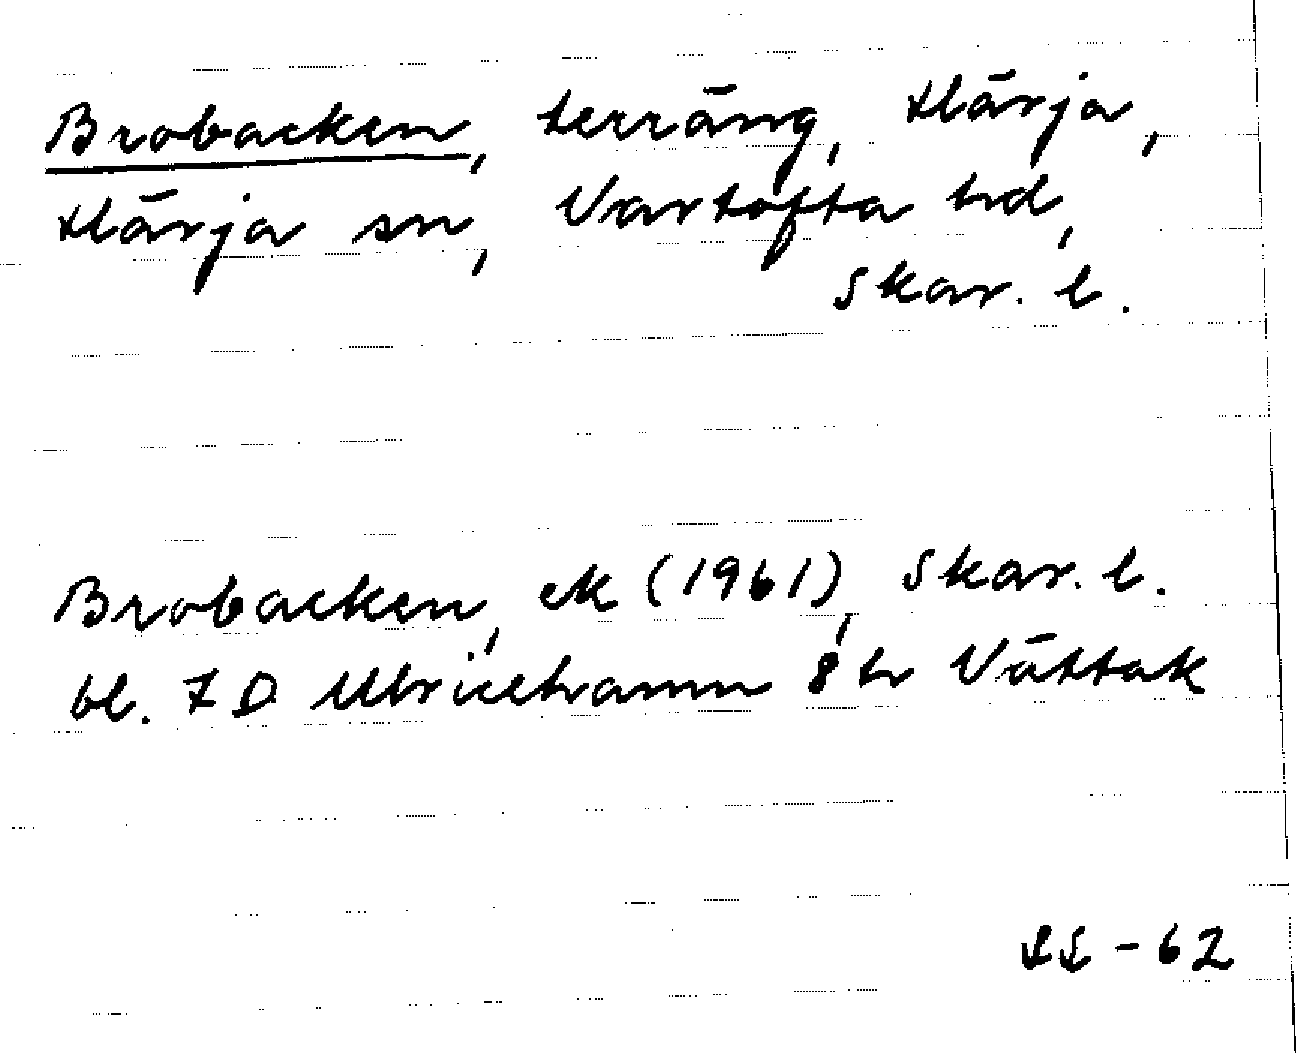 Brobacken, terräng, Härja,
Härja sn, Vartofta hd,
Skar. l.
Brobacken, ek (1961), Skar. l.
bl. 7 D Ulricehamn 8 h Vättak
LL - 62